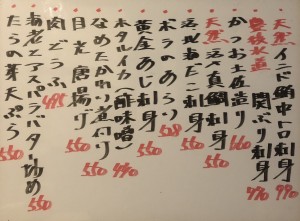 天然 インド鮪中トロ刺身 990
豊後水道 関ぶり刺身 770
かつお土佐造り 660
天然 活〆真鯛刺身 550
活北海たこ刺身 550
ボラのあらい 528
黄金あじ刺身 550
ホタルイカ(酢味噌) 440
なめたかれい煮付け 550
目光唐揚げ 550
肉どうふ 495
海老とアスパラバター炒め 550
たらの芽天ぷら 550